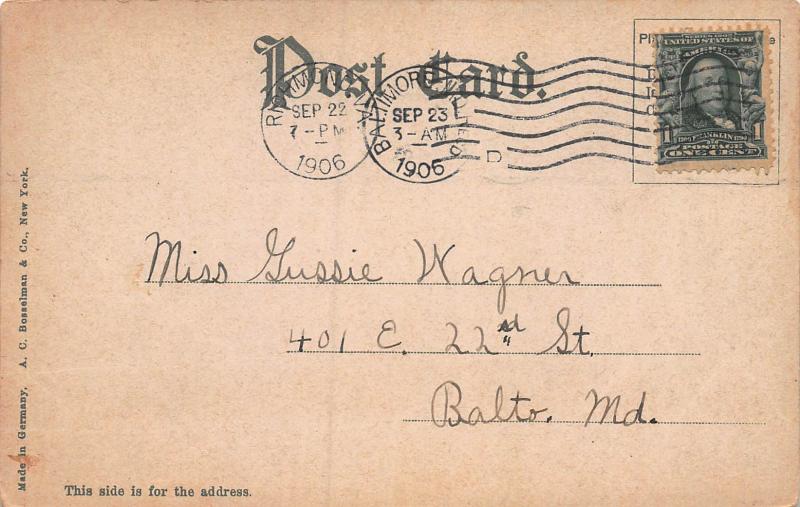 Post Card.
RICHMOND, VA.
SEP 22
7-PM
1906
BALTIMORE, MD.
SEP 23
3-AM
1906
REC'D
D
SERIES 1902
UNITED STATES OF
AMERICA
FRANKLIN
POSTAGE
1 ONE CENT 1
Miss Gussie Wagner
401 E. 22nd St.
Balto. Md.
Made in Germany, A. C. Bosselman & Co., New York.
This side is for the address.